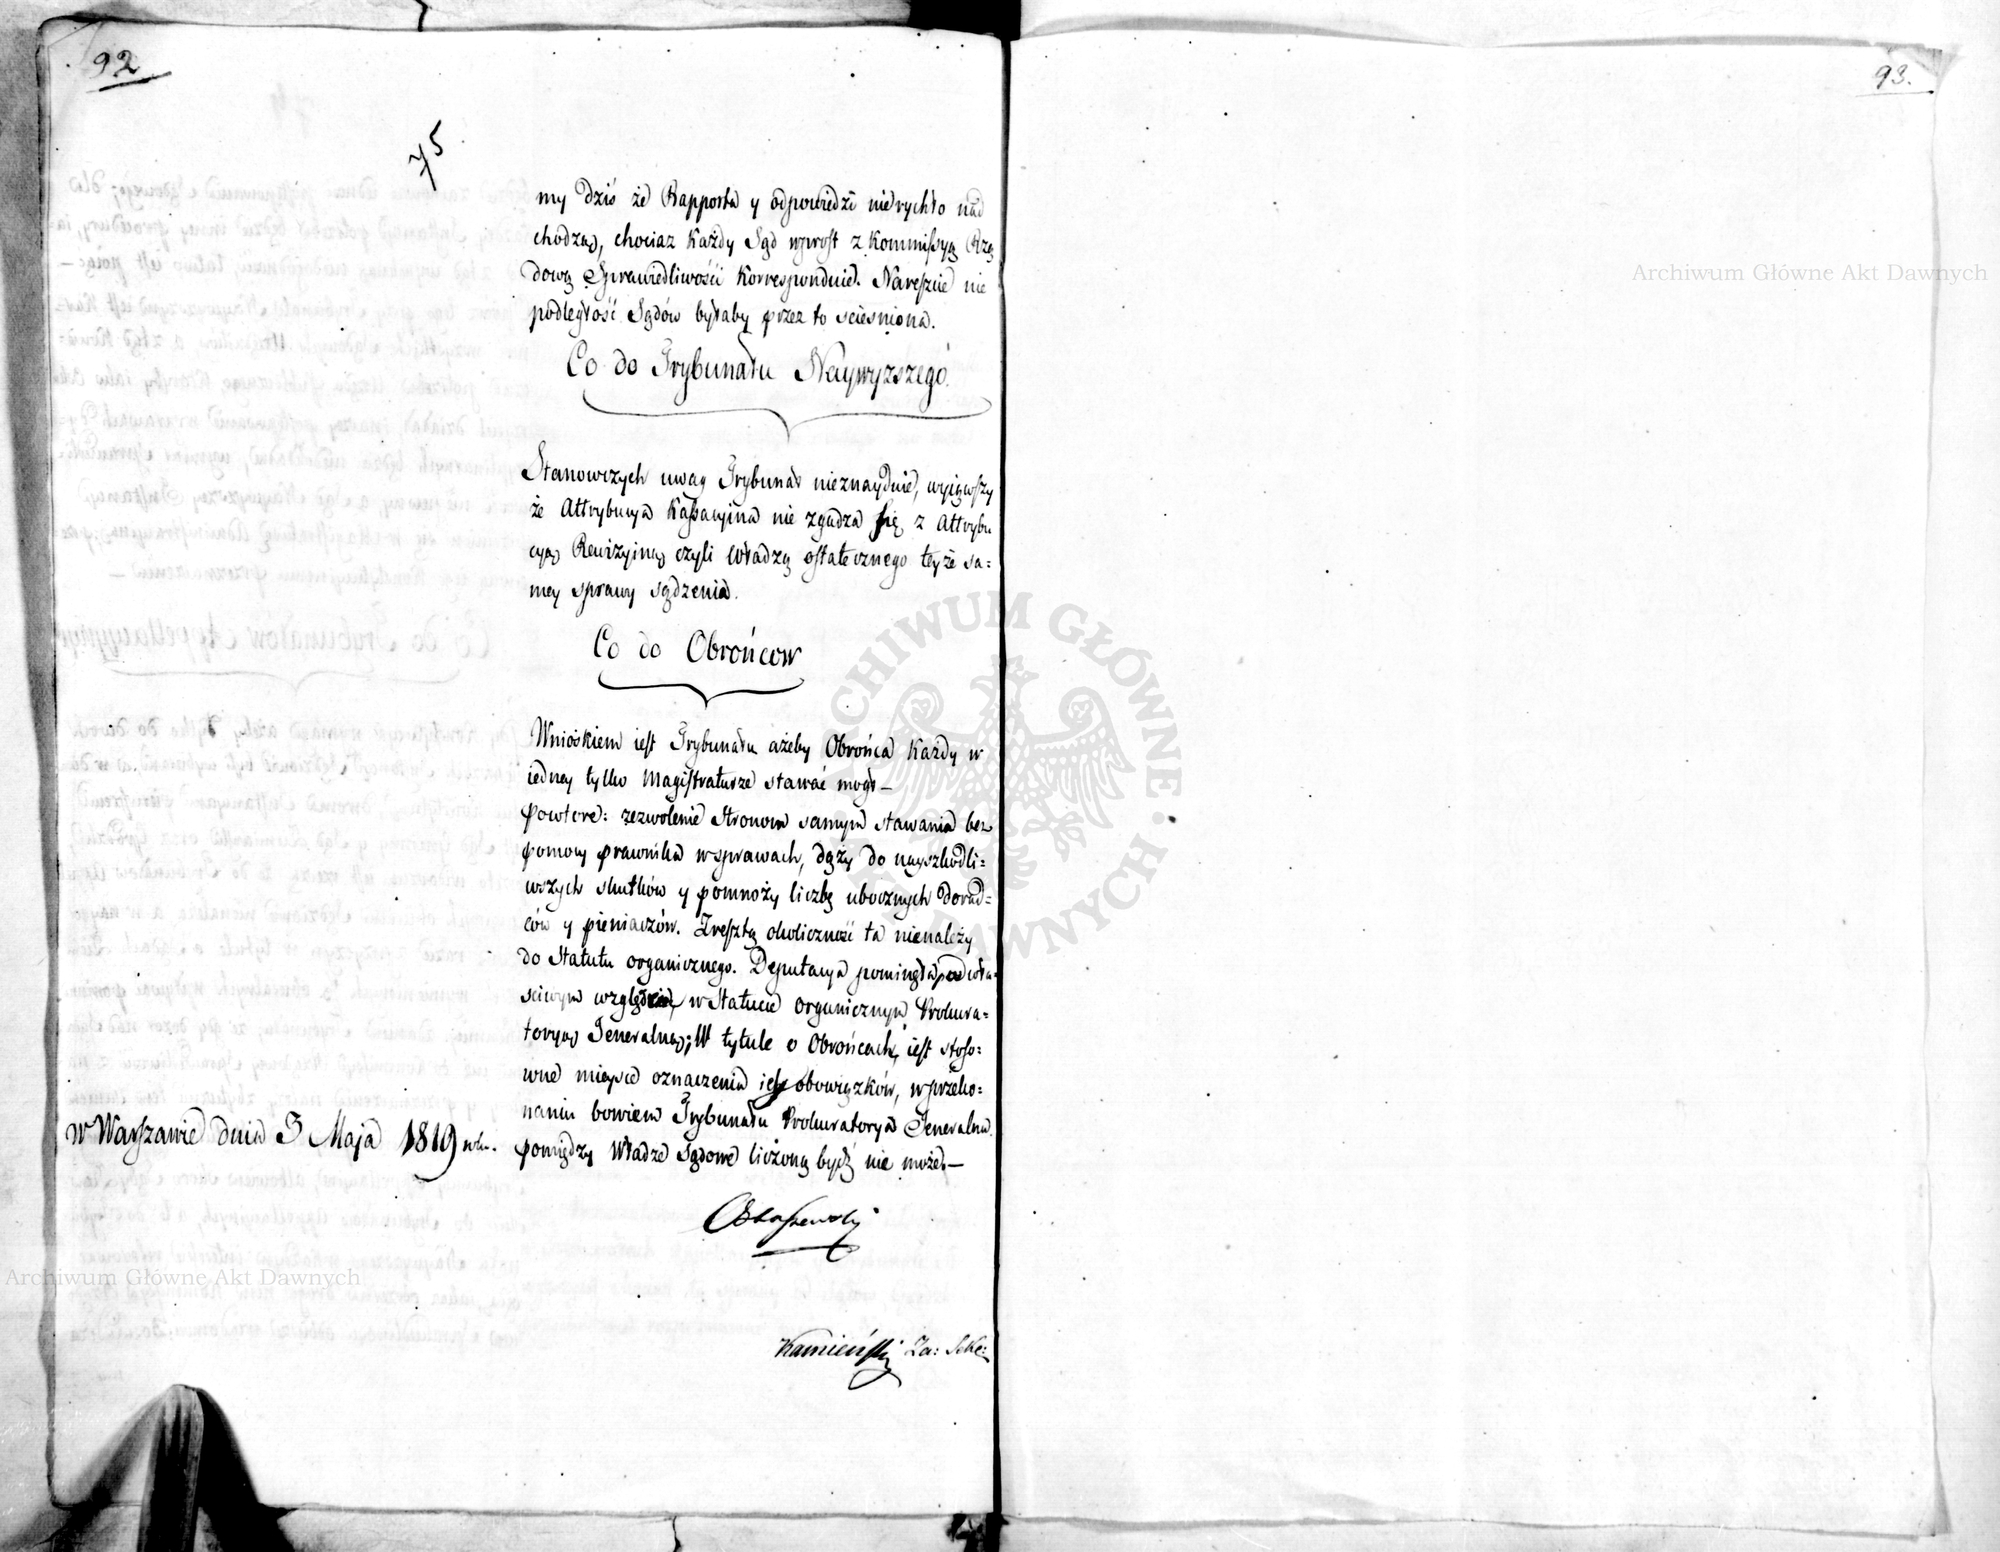 92
75
my dziś że Rapporta y odpowiedzi nierychło nad
chodzą, chociaz każdy Sąd wprost z Kommissyą Rzą
dową Sprawiedliwości korresponduie. Nareszcie nie
podległość Sądów byłaby przez to scieśniona.
Co do Trybunału Naywyższego.
Stanowczych uwag Trybunał nieznayduie, wyiąwszy
że Attrybucya Kassacyina nie zgadza się z Attrybu
cyą Rewizyiną czyli władzą ostatecznego teyże sa=
mey sprawy sądzenia.
Co do Obrońcow
Wnioskiem iest Trybunału ażeby Obrońca każdy w
iedney tylko Magistraturze stawać mógł —
Powtore: zezwolenie Stronom samym stawania bez
pomocy prawnika w sprawach, dąży do nayszkodli=
wszych skutków y pomnoży liczbę ubocznych dorad=
ców y pieniaczów. Zresztą okoliczność ta nienależy
do Statutu organicznego. Deputacya pominęła pod wła=
sciwym względem, w Statucie organicznym Prokura=
toryą Jeneralną; W tytule o Obrońcach, iest stoso=
wne mieysce oznaczenia iey obowiązków, w przeko=
naniu bowiem Trybunału Prokuratorya Jeneralna
pomiędzy Władze Sądowe liczoną bydź nie może. —
w Warszawie dnia 3 Maja 1819 roku.
Kamieński Za: Sekr:
93.
Archiwum Główne Akt Dawnych
Archiwum Główne Akt Dawnych
ARCHIWUM GŁÓWNE AKT DAWNYCH